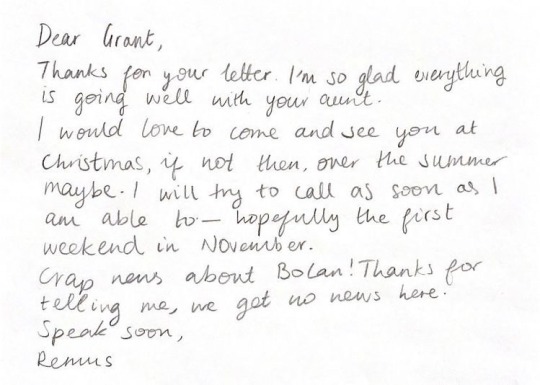 Dear Grant,
Thanks for your letter. I'm so glad everything
is going well with your aunt.
I would love to come and see you at
Christmas, if not then, over the summer
maybe. I will try to call as soon as I
am able to — hopefully the first
weekend in November.
Crap news about Bolan! Thanks for
telling me, we get no news here.
Speak soon,
Remus